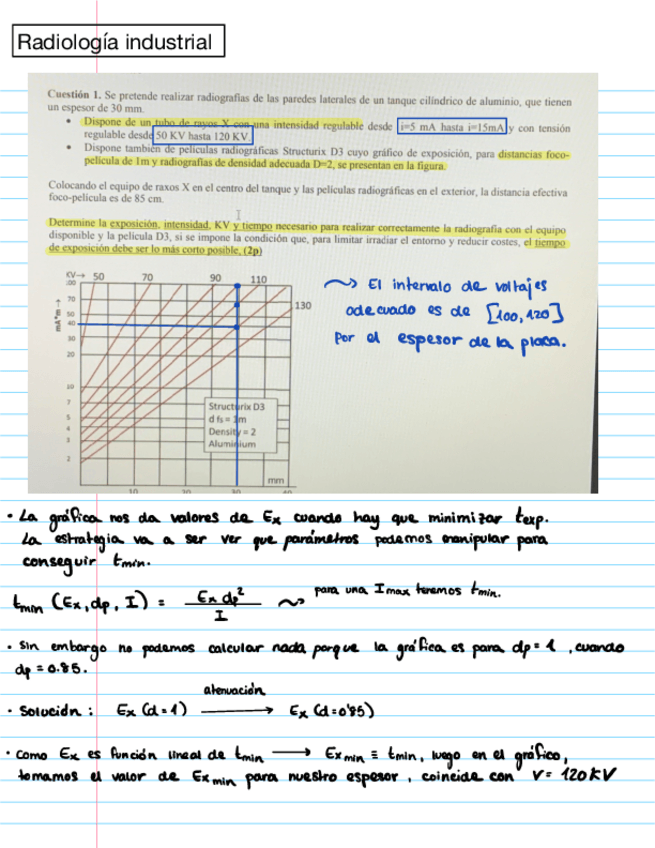 Radiología industrial
Cuestión 1. Se pretende realizar radiografías de las paredes laterales de un tanque cilíndrico de aluminio, que tienen
un espesor de 30 mm.
• Dispone de un tubo de rayos X con una intensidad regulable desde i=5 mA hasta i=15mA y con tensión
regulable desde 50 KV hasta 120 KV.
• Dispone también de películas radiográficas Structurix D3 cuyo gráfico de exposición, para distancias foco-
película de 1m y radiografías de densidad adecuada D=2, se presentan en la figura.
Colocando el equipo de raxos X en el centro del tanque y las películas radiográficas en el exterior, la distancia efectiva
foco-película es de 85 cm.
Determine la exposición, intensidad, KV y tiempo necesario para realizar correctamente la radiografía con el equipo
disponible y la película D3, si se impone la condición que, para limitar irradiar el entorno y reducir costes, el tiempo
de exposición debe ser lo más corto posible. (2p)
KV→ 50 70 90 110
130
100
70
50
40
30
20
10
7
5
4
3
2
mA*m →
Structurix D3
d fs = 1m
Density = 2
Aluminium
mm
10 20 30 40
~> El intervalo de voltajes
adecuado es de [100,120]
por el espesor de la placa.
• La gráfica nos da valores de Ex cuando hay que minimizar texp.
La estrategia va a ser ver que parámetros podemos manipular para
conseguir tmin.
tmin (Ex, dp, I) = Ex dp² / I ~> para una Imax tenemos tmin.
• Sin embargo no podemos calcular nada porque la gráfica es para dp = 1, cuando
dp = 0.85.
atenuación
• Solución: Ex (d=1) → Ex (d=0'85)
• Como Ex es función lineal de tmin → Exmin ≡ tmin, luego en el gráfico,
tomamos el valor de Exmin para nuestro espesor, coincide con V= 120KV